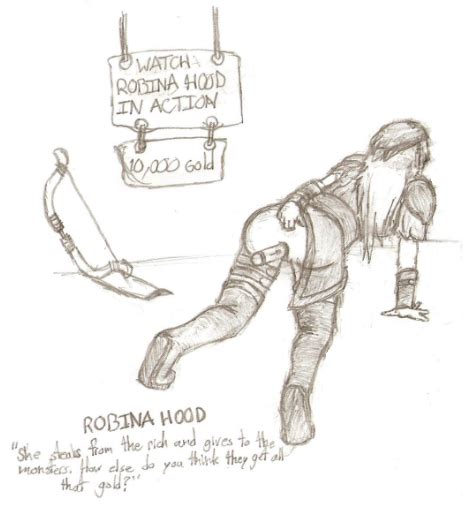 WATCH
ROBINA HOOD
IN ACTION
10,000 Gold
ROBINA HOOD
"She steals from the rich and gives to the
monsters. How else do you think they get all
that gold?"